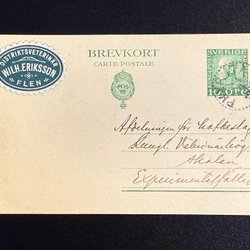 DISTRIKTSVETERINÄR
WILH. ERIKSSON
FLEN
BREVKORT
CARTE POSTALE
SVERIGE
10 ÖRE
Afdelningen för hofbeslag
Kungl. Veterinärhög
skolan
Experimentalfältet